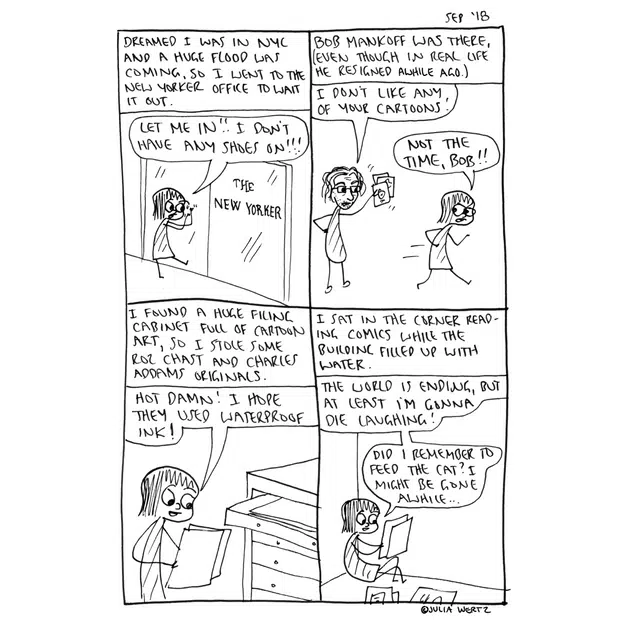 SEP '18
DREAMED I WAS IN NYC
AND A HUGE FLOOD WAS
COMING, SO I WENT TO THE
NEW YORKER OFFICE TO WAIT
IT OUT.
LET ME IN!! I DON'T
HAVE ANY SHOES ON!!!
THE
NEW YORKER
BOB MANKOFF WAS THERE,
(EVEN THOUGH IN REAL LIFE
HE RESIGNED AWHILE AGO.)
I DON'T LIKE ANY
OF YOUR CARTOONS!
NOT THE
TIME, BOB!!
I FOUND A HUGE FILING
CABINET FULL OF CARTOON
ART, SO I STOLE SOME
ROZ CHAST AND CHARLES
ADDAMS ORIGINALS.
HOT DAMN! I HOPE
THEY USED WATERPROOF
INK!
I SAT IN THE CORNER READ-
ING COMICS WHILE THE
BUILDING FILLED UP WITH
WATER.
THE WORLD IS ENDING, BUT
AT LEAST I'M GONNA
DIE LAUGHING!
DID I REMEMBER TO
FEED THE CAT? I
MIGHT BE GONE
AWHILE...
©JULIA WERTZ